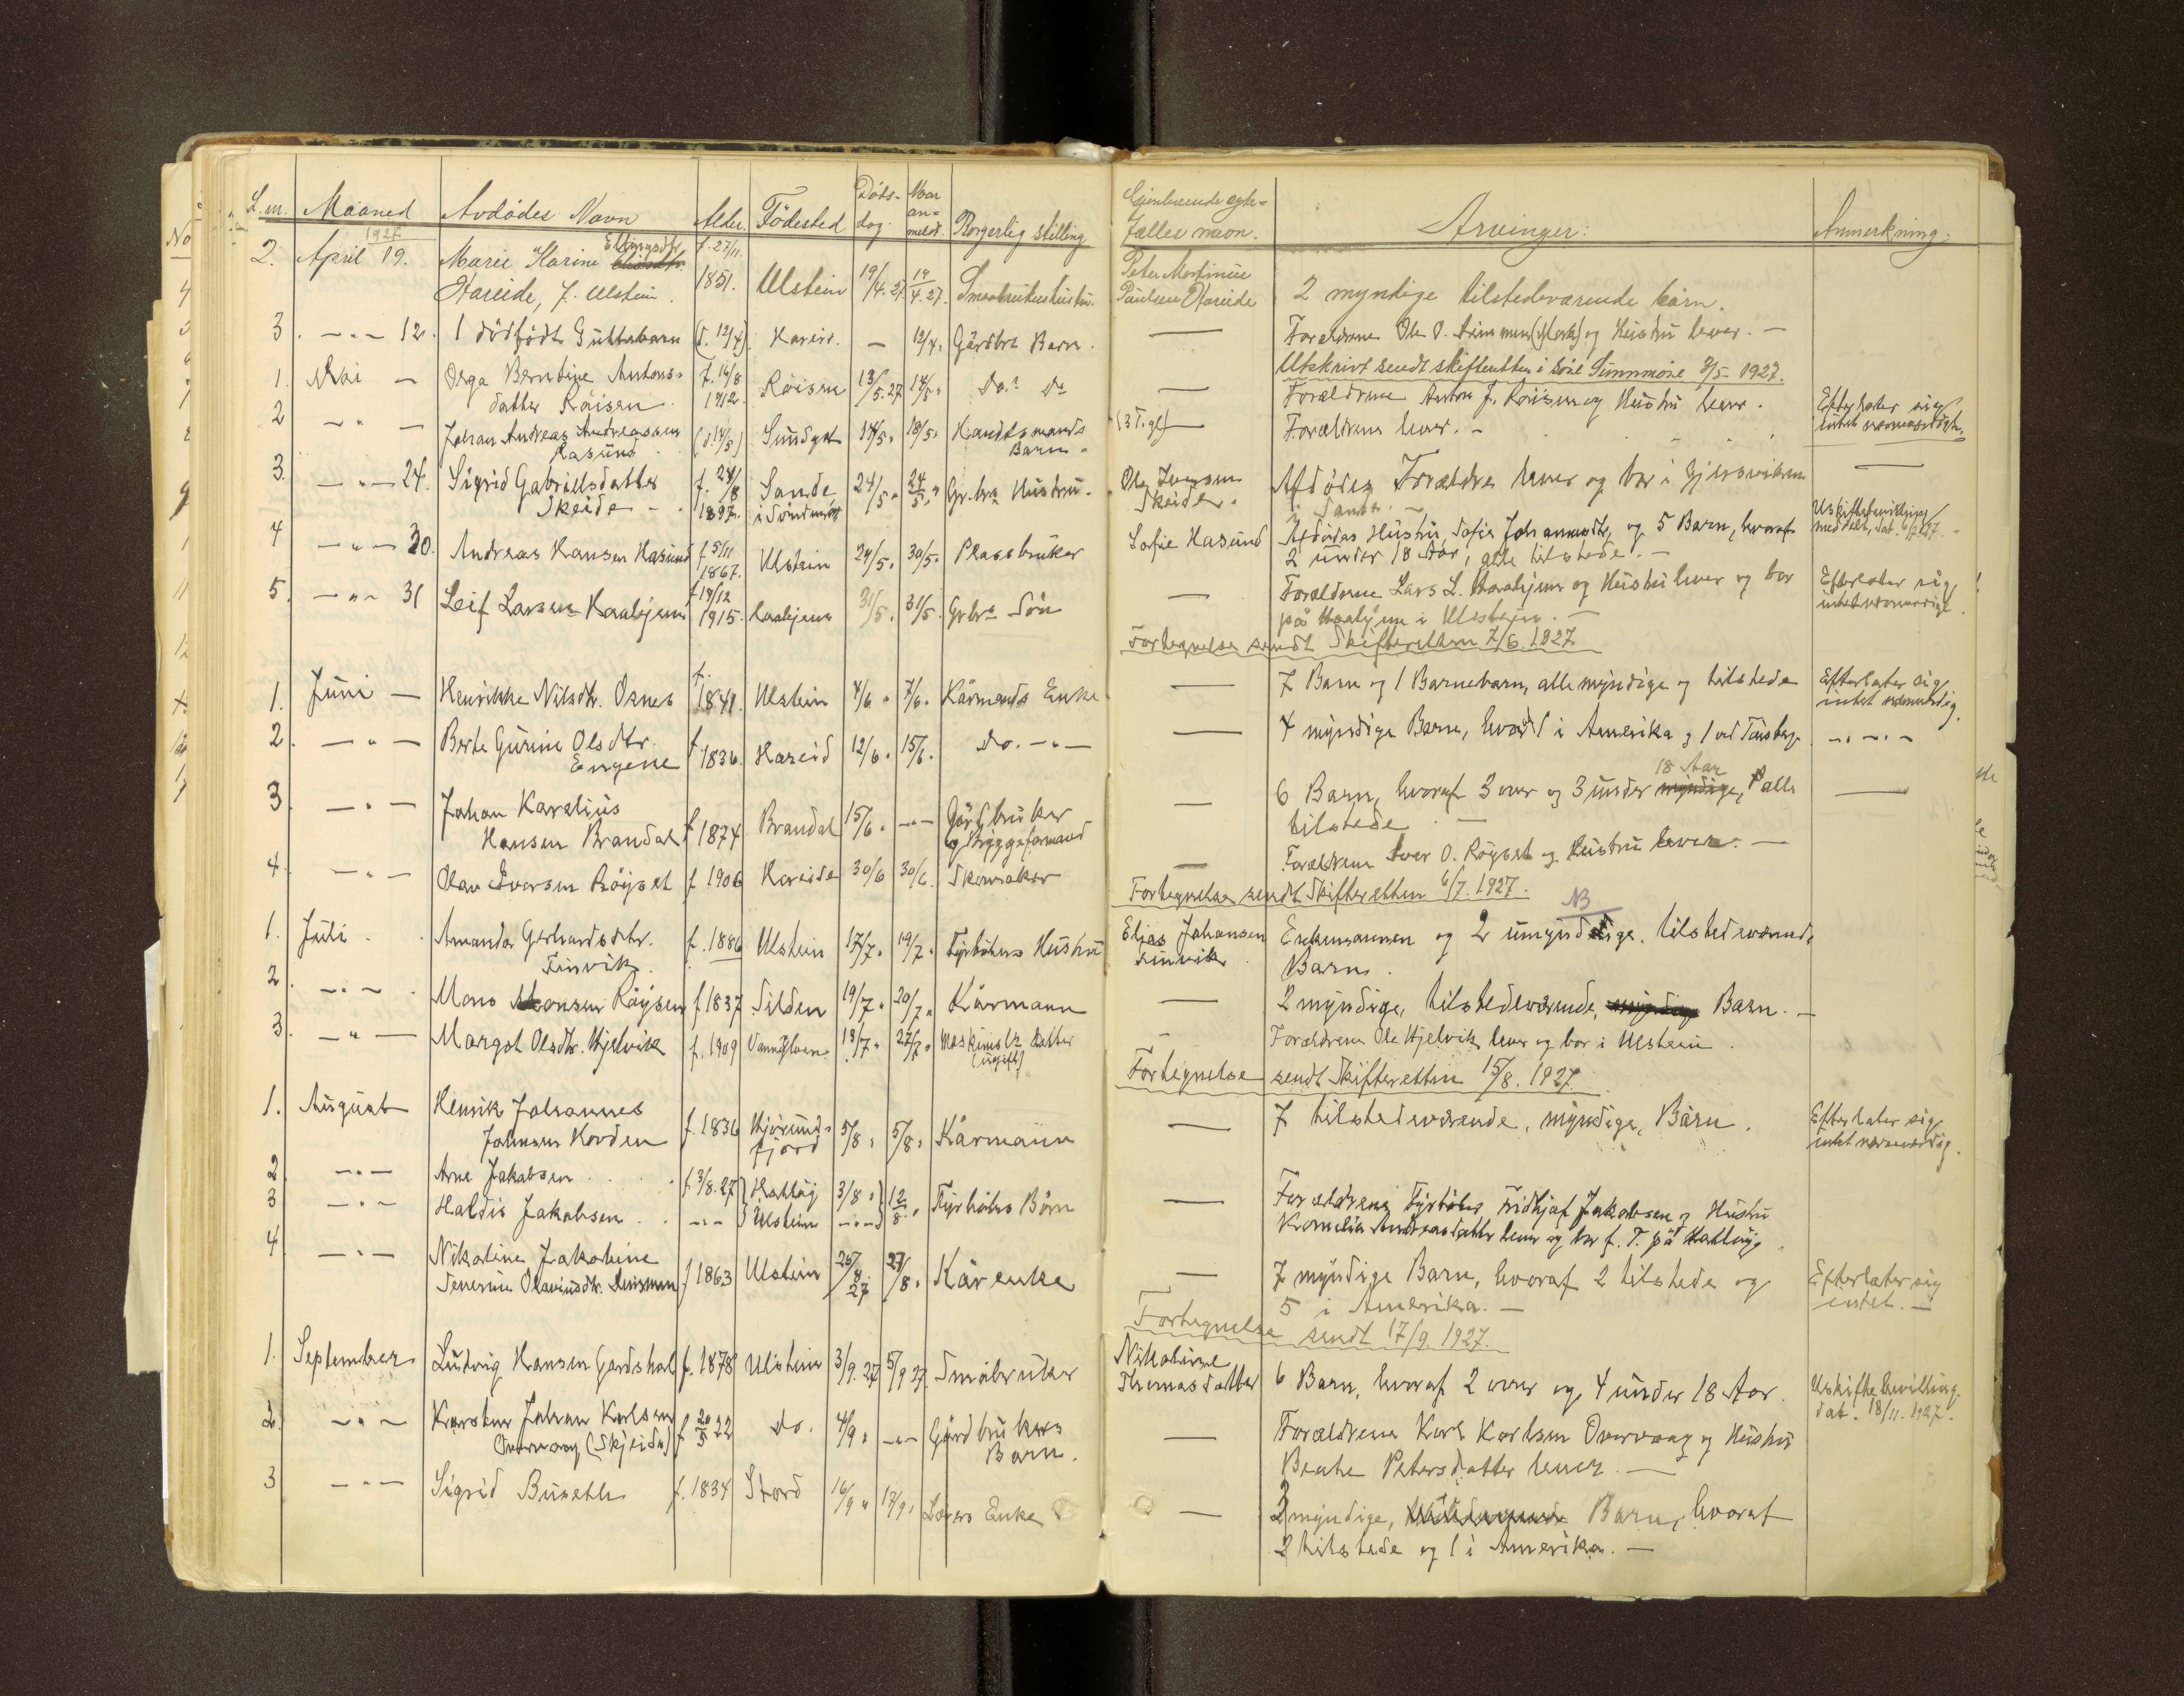 L.nr. Maaned Avdödes Navn Alder. Födested Döds-dag. Naar an-meldt. Borgerlig stilling Gjenlevende egte-fælles navn. Arvinger: Anmerkning.
1927
2. April 19. Marie Karine Ellingsdtr. f. 27/11. Peter Martinus
Hareide, f. Ulstein. 1851. Ulstein 19/4.27 19/4.27. Smaabrukerhustru. Paulsen Hareide 2 myndige tilstedeværende barn.
3. -"- 12. 1 dödfödt Guttebarn (d. 12/4). Hareid. - 12/4. Gårdbr. Barn. — Forældrene Ole O. og Hustru lever. -
Utskrivt sendt skifteretten i Söre Sunnmöre 3/5-1927.
1. Mai - Olga Berntine Antons- f. 16/8 Röisen 13/5.27 14/5" Do. Do — Forældrene Anton J. Röisen og Hustru lever.
datter Röisen. 1912.
2 -"- - Johan Andreas Andreassen (d. 14/5) Sundgot 14/5" 18/5" Handelsmands (3 T. gl) — Forældrene lever. - Efterlater sig
Hasund Barn. intet nævneværdigt.
3. -"- 24. Sigrid Gabrielsdatter f. 24/8 Sande 24/5" 24/5" Gr.brs Hustru. Ole Iversen Afdödes Forældre lever og bor i Gjerdsviken —
Skeide - 1897. i Söndmör Skeide. i Sande. -
4 -"- 30. Andreas Hansen Hasund f. 5/11 1867. Ulstein 24/5" 30/5" Plassbruker Sofie Hasund Afdödes Hustru, Sofie Johannesdtr, og 5 Barn, hvoraf Uskiftebevilling
2 under 18 Aar, alle tilstede. - meddelt, dat. 6/7 1927.
5. -"- 31 Leif Larsen Haabjem f. 19/12 1915. Haabjem 31/5. 31/5. Gr.brs Sön — Forældrene Lars L. Haabjem og Hustru lever og bor Efterlater sig
på Haabjem i Ulstein. - intet nævneværdigt.
Fortegnelse sendt Skifteretten 7/6.1927
1. Juni - Henrikke Nilsdtr. Osnes f. 1841. Ulstein 4/6" 7/6" Kårmands Enke — 7 Barn og 1 Barnebarn, alle myndige og tilstede Efterlater sig
intet nævneværdig.
2. -"- Berte Gurine Olsdtr. f. 1836. Hareid 12/6" 15/6. Do. -"- — 4 myndige Barn, hvoraf 1 i Amerika og 1 ved Tönsberg. -"-"-
Engene
3. -"- Johan Karelius f. 1874 Brandal 15/6" -"- Gårdbruker — 6 Barn, hvoraf 3 over og 3 under 18 Aar, alle —
Hansen Brandal og Byggeformand tilstede. -
4. -"- Olav Iversen Röyset f. 1906 Hareide 30/6 30/6. Skomaker — Forældrene Iver O. Röyset og Hustru lever. -
Fortegnelse sendt Skifteretten 6/7.1927.
NB
1. Juli Amanda Gerhardsdtr. f. 1886 Ulstein 17/7" 19/7" Fyrböters Hustru Elias Johansen Enkemannen og 2 umyndige, tilstedeværende
Finvik. Finvik Barn.
2. -"- Mons Monsen Röysen f. 1837 Silden 19/7" 20/7" Kårmann — 2 myndige, tilstedeværende, Barn. -
3. -"- Margot Olsdtr. Hjelvik f. 1909 18/7" 27/7" Maskinists Datter - Forældrene Ole Hjelvik lever og bor i Ulstein.
(ugift)
Fortegnelse sendt Skifteretten 15/8.1927
1. August Henrik Johannes f. 1836 Hjörund- 5/8" 5/8" Kårmann — 7 tilstedeværende, myndige, Barn. Efterlater sig
Johnsen Hovden fjord intet nævneværdig.
2. -"- Arne Jakobsen f. 3/8.27 Hatlöy 3/8" 12/8" Fyrböters Börn — Forældrene Fyrböter Fridtjof Jakobsen og Hustru
3 -"- Haldis Jakobsen -"- Ulstein -"- Kornelia Andreasdatter lever og bor f. T. på Hatlöy.
4 -"- Nikoline Jakobine f 1863 Ulstein 26/8.27 27/8" Kårenke — 7 myndige Barn, hvoraf 2 tilstede og Efterlater sig
Severine Olavusdtr. 5 i Amerika. - intet. -
Fortegnelse sendt 17/9.1927.
1. September Ludvig Hansen Gardshol f. 1878 Ulstein 3/9.27 5/9 27. Småbruker Nikoline 6 Barn, hvoraf 2 over og 4 under 18 Aar. Uskiftebevilling.
Thomasdatter dat. 18/11.1927.
2. -"- Karsten Johan Karlsen f 20/5 22 Do. 4/9" -"- Gårdbrukers — Forældrene Karl Karlsen Overvaag og Hustru
Overvaag (Skjeide) Barn. Beathe Petersdatter lever. -
3 -"- Sigrid Buseth f. 1834 Stord 16/9" 17/9" Lærers Enke — 3 myndige, Barn, hvoraf
2 tilstede og 1 i Amerika. -